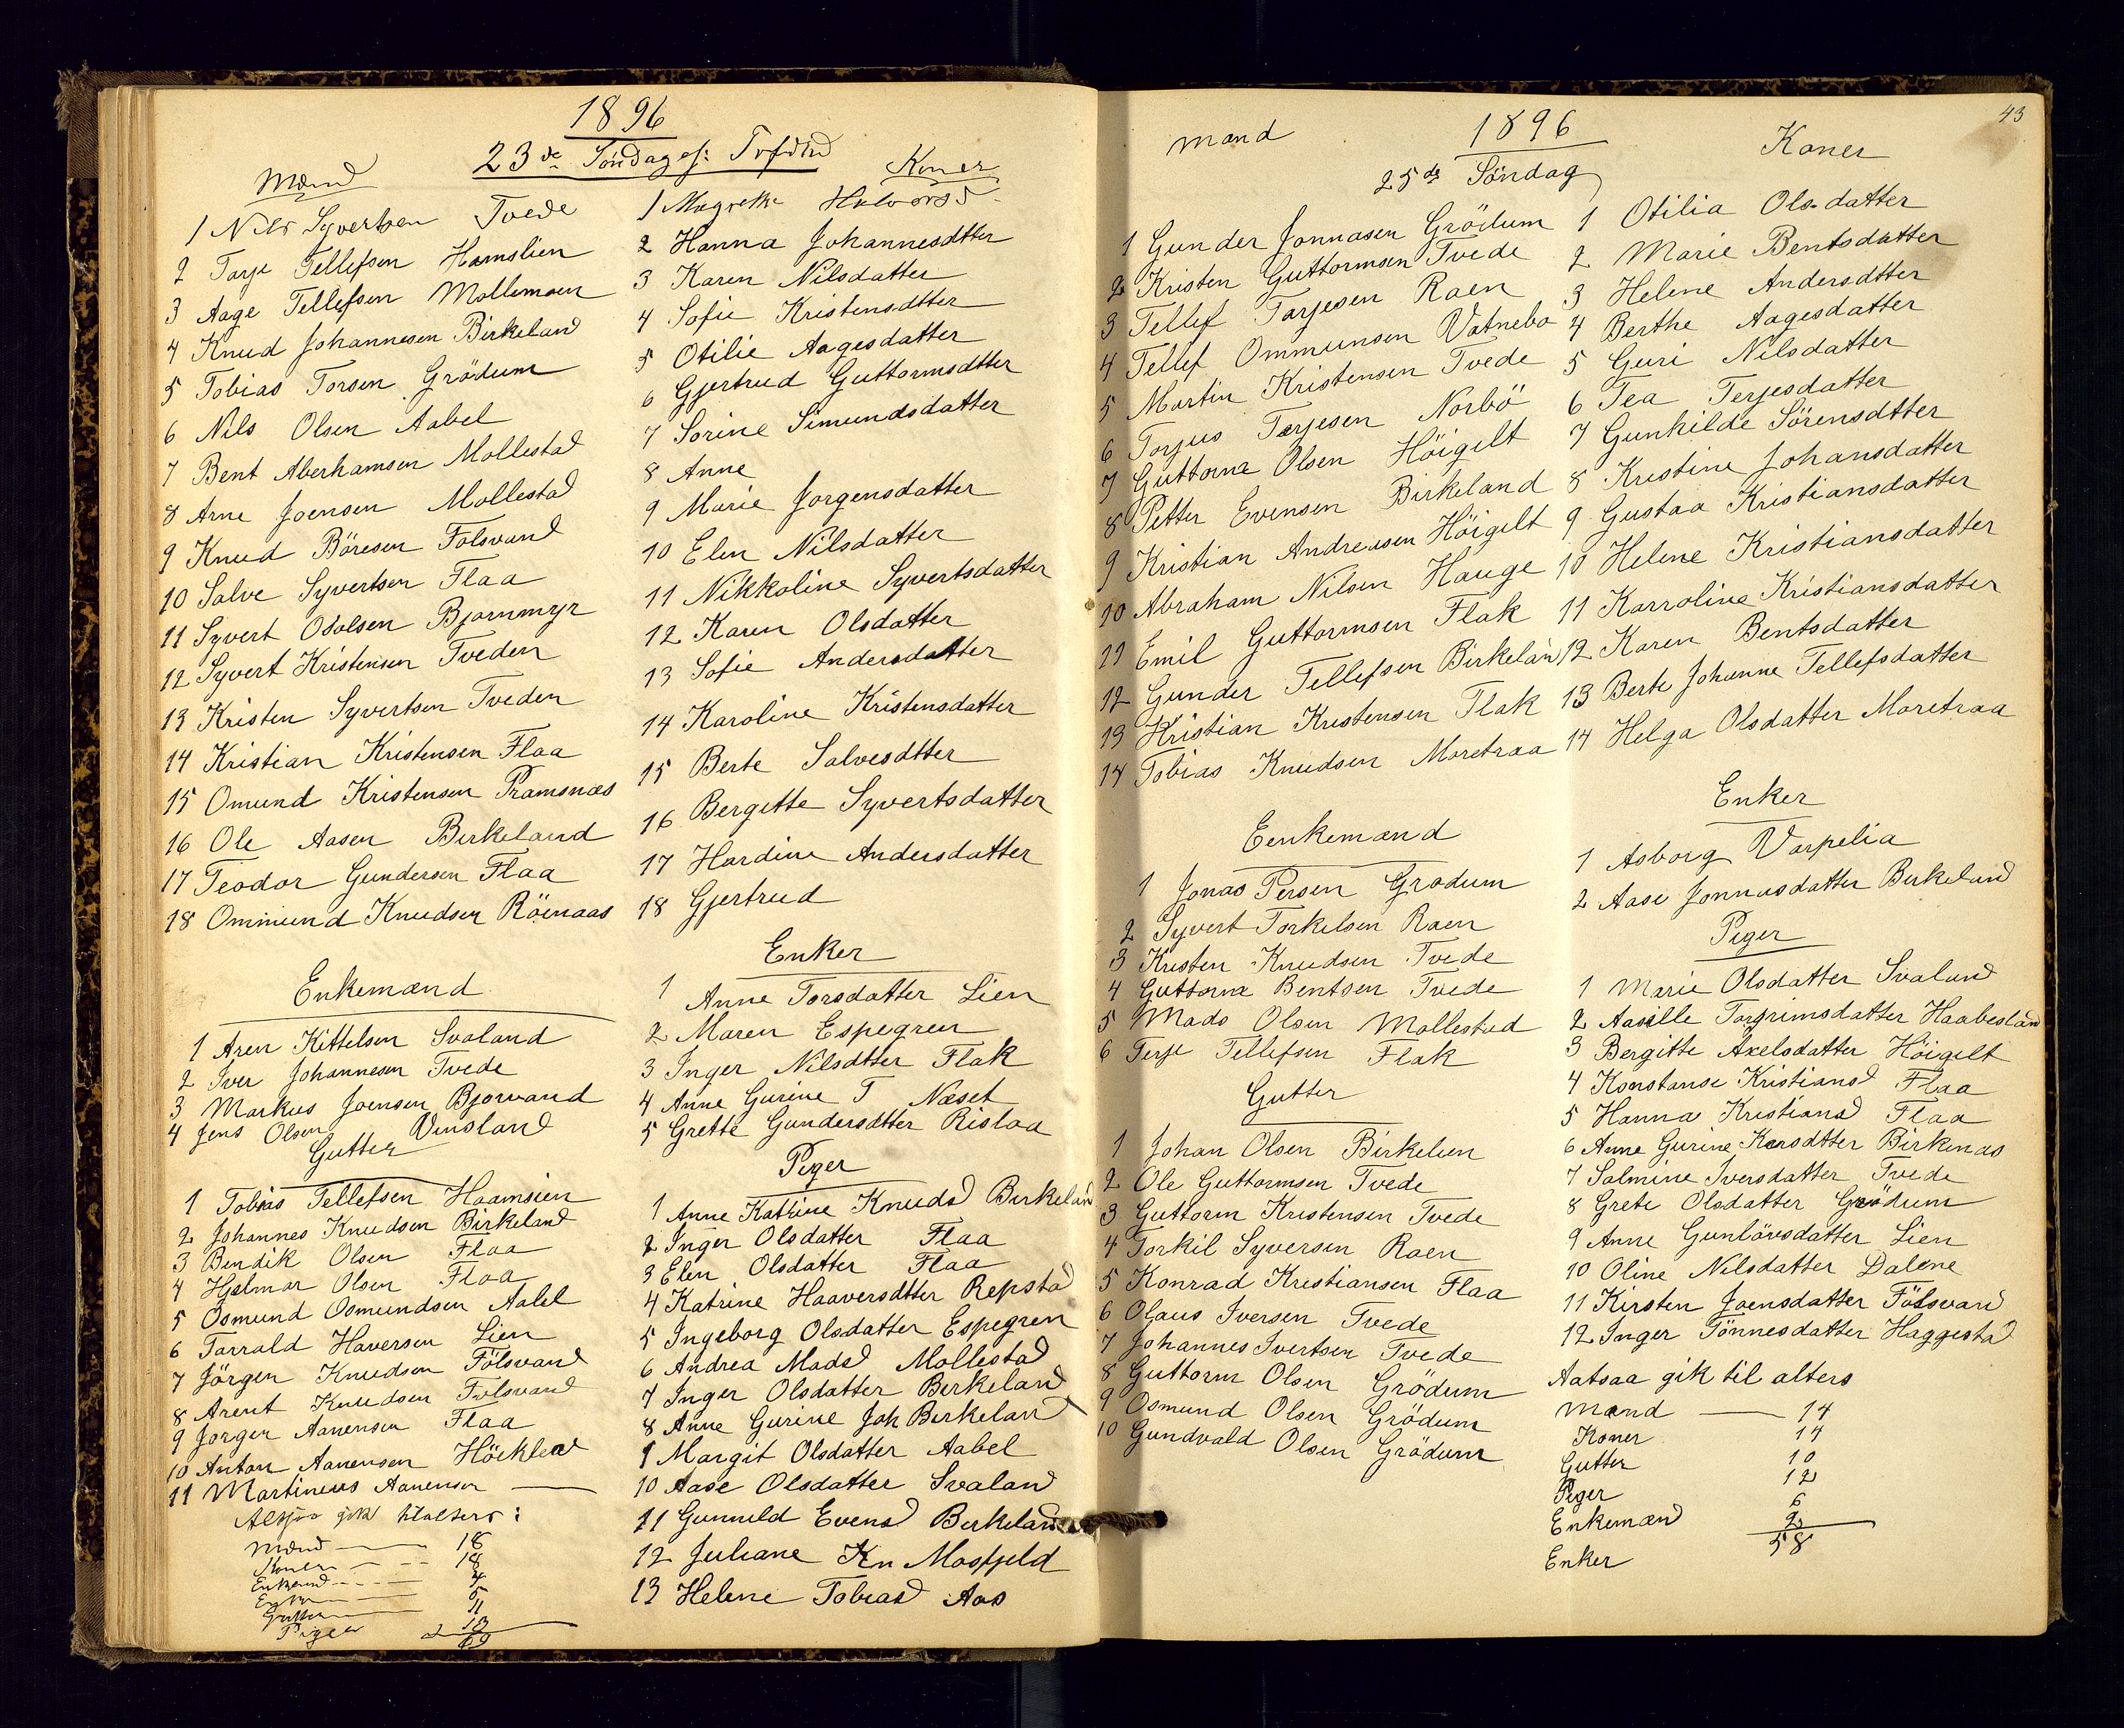 1896
23de Söndag ef: Trefdhd
Mænd
1 Nils Syvertsen Tvede
2 Tarje Tellefsen Hamslien
3 Aage Tellefsen Mollemoen
4 Knud Johannesen Birkeland
5 Tobias Torsen Grödum
6 Nils Olsen Aabel
7 Bent Aberhamsen Mollestad
8 Arne Joensen Mollestad
9 Knud Böresen Fölsvand
10 Salve Syvertsen Flaa
11 Syvert Odalsen Bjornmyr
12 Syvert Kristensen Tveden
13 Kristen Syvertsen Tveden
14 Kristian Kristensen Flaa
15 Omund Kristensen Pramsnæs
16 Ole Aasen Birkeland
17 Teodor Gundersen Flaa
18 Ommund Knudsen Röinaas
Enkemænd
1 Aren Kittelsen Svaland
2 Iver Johannesen Tvede
3 Markus Joensen Bjorvand
4 Jens Olsen Vinsland
Gutter
1 Tobias Tellefsen Haamsien
2 Johannes Knudsen Birkeland
3 Bendik Olsen Flaa
4 Hjelmar Olsen Flaa
5 Osmund Osmundsen Aabel
6 Tarrald Haversen Lien
7 Jörgen Knudsen Fölsvand
8 Arent Knudsen Fölsvand
9 Jorgen Aanensen Flaa
10 Anton Aanensen Höiklev
11 Martineus Aanensen —
gik til alters:
Mænd — 18
Koner — 18
Enkemd — 4
Enker — 5
Gutter — 11
Piger — 13
69
Koner
1 Magrethe Halvorsd
2 Hanna Johannesdtter
3 Karen Nilsdatter
4 Sofie Kristensdtter
5 Otilie Aagesdatter
6 Gjertrud Guttormsdtter
7 Sorine Simundsdatter
8 Anne
9 Marie Jorgensdatter
10 Elen Nilsdatter
11 Nikkoline Syvertsdatter
12 Karen Olsdatter
13 Sofie Andersdatter
14 Karoline Kristensdatter
15 Berte Salvesdtter
16 Bergitte Syvertsdatter
17 Hardine Andersdatter
18 Gjertrud
Enker
1 Anne Torsdatter Lien
2 Maren Espegren
3 Inger Nilsdtter Flak
4 Anne Gurine T Næset
5 Grette Gundersdtter Rislaa
Piger
1 Anne Katrine Knudsd Birkeland
2 Inger Olsdatter Flaa
3 Elen Olsdatter Flaa
4 Katrine Haaversdtter Repstad
5 Ingeborg Olsdatter Espegren
6 Andrea Madsd Mollestad
7 Inger Olsdatter Berkeland
8 Anne Gurine Joh Berkeland
9 Margit Olsdatter Aabel
10 Aase Olsdatter Svaland
11 Gunnild Evensd Berkeland
12 Juliane Kn Mosfjeld
13 Helene Tobiasd Aas
43
1896
25de Söndag
Mænd
1 Gunder Jonnasen Grödum
2 Kristen Guttormsen Tvede
3 Tellef Tarjesen Raen
4 Tellef Ommunsen Vatnebo
5 Martin Kristensen Tvede
6 Torjus Terjesen Norbö
7 Guttorm Olsen Höigilt
8 Petter Evensen Birkeland
9 Kristian Andreasen Höigilt
10 Abraham Nilsen Hauge
11 Emil Guttormsen Flak
12 Gunder Tellefsen Birkelan
13 Kristian Kristensen Flak
14 Tobias Knudsen Moretraa
Eenkemænd
1 Jonas Persen Grodum
2 Syvert Torkilsen Raen
3 Kristen Knudsen Tvede
4 Guttorm Bentsen Tvede
5 Mads Olsen Mollestad
6 Terje Tellefsen Flak
Gutter
1 Johan Olsen Birkelien
2 Ole Guttormsen Tvede
3 Guttorm Kristensen Tvede
4 Torkil Syversen Raen
5 Konrad Kristiansen Flaa
6 Olaus Iversen Tvede
7 Johannes Ivertsen Tvede
8 Guttorm Olsen Grödum
9 Osmund Olsen Grödum
10 Gundvald Olsen Grödum
Koner
1 Otilia Olsdatter
2 Marie Bentsdatter
3 Helene Andersdtter
4 Berthe Aagesdatter
5 Guri Nilsdatter
6 Tea Terjesdatter
7 Gunhilde Sörensdtter
8 Kristine Johansdatter
9 Gustaa Kristiansdatter
10 Helene Kristiansdatter
11 Karroline Kristiansdatter
12 Karen Bentsdatter
13 Berte Johanne Tellefsdatter
14 Helga Olsdatter Moretraa
Enker
1 Asborg Varpelia
2 Aase Jonnasdatter Birkeland
Piger
1 Marie Olsdatter Svaland
2 Aasille Torgrimsdatter Haabesland
3 Bergitte Axelsdatter Höigilt
4 Konstanse Kristiansd Flaa
5 Hanna Kristiansd Flaa
6 Anne Gurine Karsdtter Birkenas
7 Salmine Iversdatter Tvede
8 Grete Olsdatter Grödum
9 Anne Gunlövsdatter Lien
10 Oline Nilsdatter Dalene
11 Kirsten Joensdatter Fölsvand
12 Inger Tönnesdatter Haggestad
Aatsaa gik til alters
Mænd — 14
Koner 14
Gutter 10
Piger 12
Enkemænd 6
Enker 2
58